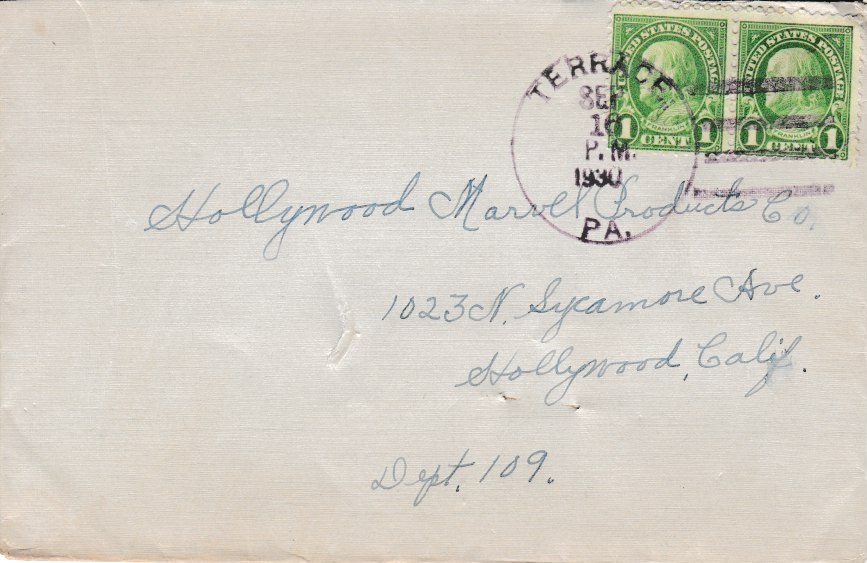 UNITED STATES POSTAGE UNITED STATES POSTAGE
FRANKLIN FRANKLIN
1 CENT 1 1 CENT 1
TERRACE,
SEP
16
P.M.
1930
PA.
Hollywood Marvel Products Co.
1023 N. Sycamore Ave.
Hollywood, Calif.
Dept. 109.